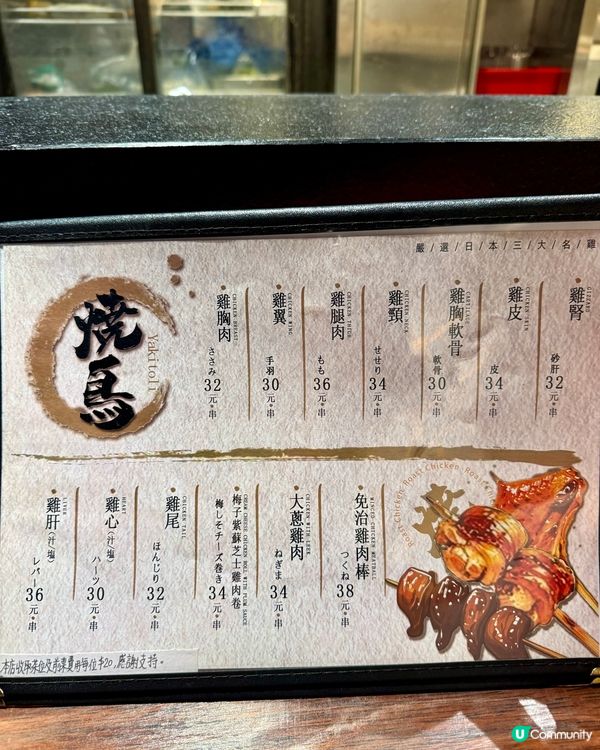 嚴/選/日/本/三/大/名/雞
燒鳥
Yakitoli
雞腎
GIZZARD
砂肝
32元・串
雞皮
CHICKEN SKIN
皮
34元・串
雞胸軟骨
CARTILAGE
軟骨
30元・串
雞頸
CHICKEN NECK
せせり
34元・串
雞腿肉
CHICKEN THIGH
もも
36元・串
雞翼
CHICKEN WING
手羽
30元・串
雞胸肉
CHICKEN BREAST
ささみ
32元・串
Roast Chicken Roast Chicken Roast
免治雞肉棒
MINCED CHICKEN MEATBALL
つくね
38元・串
大蔥雞肉
CHICKEN WITH LEEK
ねぎま
34元・串
梅子紫蘇芝士雞肉卷
CREAM CHEESE CHICKEN ROLL WITH PLUM SAUCE
梅しそチーズ巻き
34元・串
雞尾
CHICKEN TAIL
ぼんじり
32元・串
雞心(汁/塩)
HEART
ハーツ
30元・串
雞肝(汁/塩)
LIVER
レバー
36元・串
本店收取茶位及前菜費用每位$20,感謝支持。
U Community